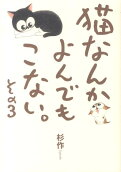 猫なんか
よんでも
こない。
その3
杉作